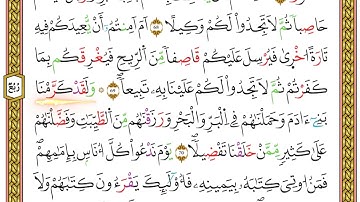 حَاصِبًا ثُمَّ لَا تَجِدُوا۟ لَكُمْ وَكِيلًا ﴿٦٨﴾ أَمْ أَمِنتُمْ أَن يُعِيدَكُمْ فِيهِ
تَارَةً أُخْرَىٰ فَيُرْسِلَ عَلَيْكُمْ قَاصِفًا مِّنَ ٱلرِّيحِ فَيُغْرِقَكُم بِمَا
كَفَرْتُمْ ثُمَّ لَا تَجِدُوا۟ لَكُمْ عَلَيْنَا بِهِۦ تَبِيعًا ﴿٦٩﴾ وَلَقَدْ كَرَّمْنَا
بَنِىٓ ءَادَمَ وَحَمَلْنَـٰهُمْ فِى ٱلْبَرِّ وَٱلْبَحْرِ وَرَزَقْنَـٰهُم مِّنَ ٱلطَّيِّبَـٰتِ وَفَضَّلْنَـٰهُمْ
عَلَىٰ كَثِيرٍ مِّمَّنْ خَلَقْنَا تَفْضِيلًا ﴿٧٠﴾ يَوْمَ نَدْعُوا۟ كُلَّ أُنَاسٍۭ بِإِمَـٰمِهِمْ
فَمَنْ أُوتِىَ كِتَـٰبَهُۥ بِيَمِينِهِۦ فَأُو۟لَـٰٓئِكَ يَقْرَءُونَ كِتَـٰبَهُمْ وَلَا
رُبْع